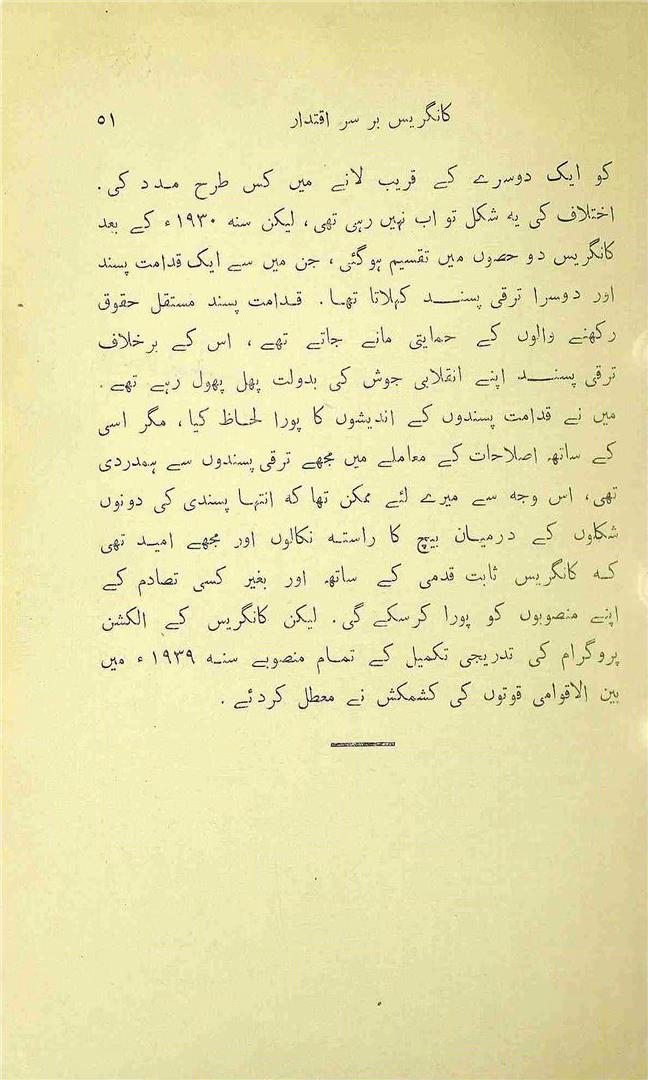 کانگریس بر سر اقتدار ۵۱
کو ایک دوسرے کے قریب لانے میں کس طرح مدد کی۔
اختلاف کی یہ شکل تو اب نہیں رہی تھی، لیکن سنہ ۱۹۳۰ء کے بعد
کانگریس دو حصوں میں تقسیم ہوگئی، جن میں سے ایک قدامت پسند
اور دوسرا ترقی پسند کہلاتا تھا۔ قدامت پسند مستقل حقوق
رکھنے والوں کے حمایتی مانے جاتے تھے، اس کے برخلاف
ترقی پسند اپنے انقلابی جوش کی بدولت پھل پھول رہے تھے۔
میں نے قدامت پسندوں کے اندیشوں کا پورا لحاظ کیا، مگر اسی
کے ساتھ اصلاحات کے معاملے میں مجھے ترقی پسندوں سے ہمدردی
تھی، اس وجہ سے میرے لئے ممکن تھا کہ انتہا پسندی کی دونوں
شکلوں کے درمیان بیچ کا راستہ نکالوں اور مجھے امید تھی
کہ کانگریس ثابت قدمی کے ساتھ اور بغیر کسی تصادم کے
اپنے منصوبوں کو پورا کرسکے گی۔ لیکن کانگریس کے الکشن
پروگرام کی تدریجی تکمیل کے تمام منصوبے سنہ ۱۹۳۹ء میں
بین الاقوامی قوتوں کی کشمکش نے معطل کردئے۔